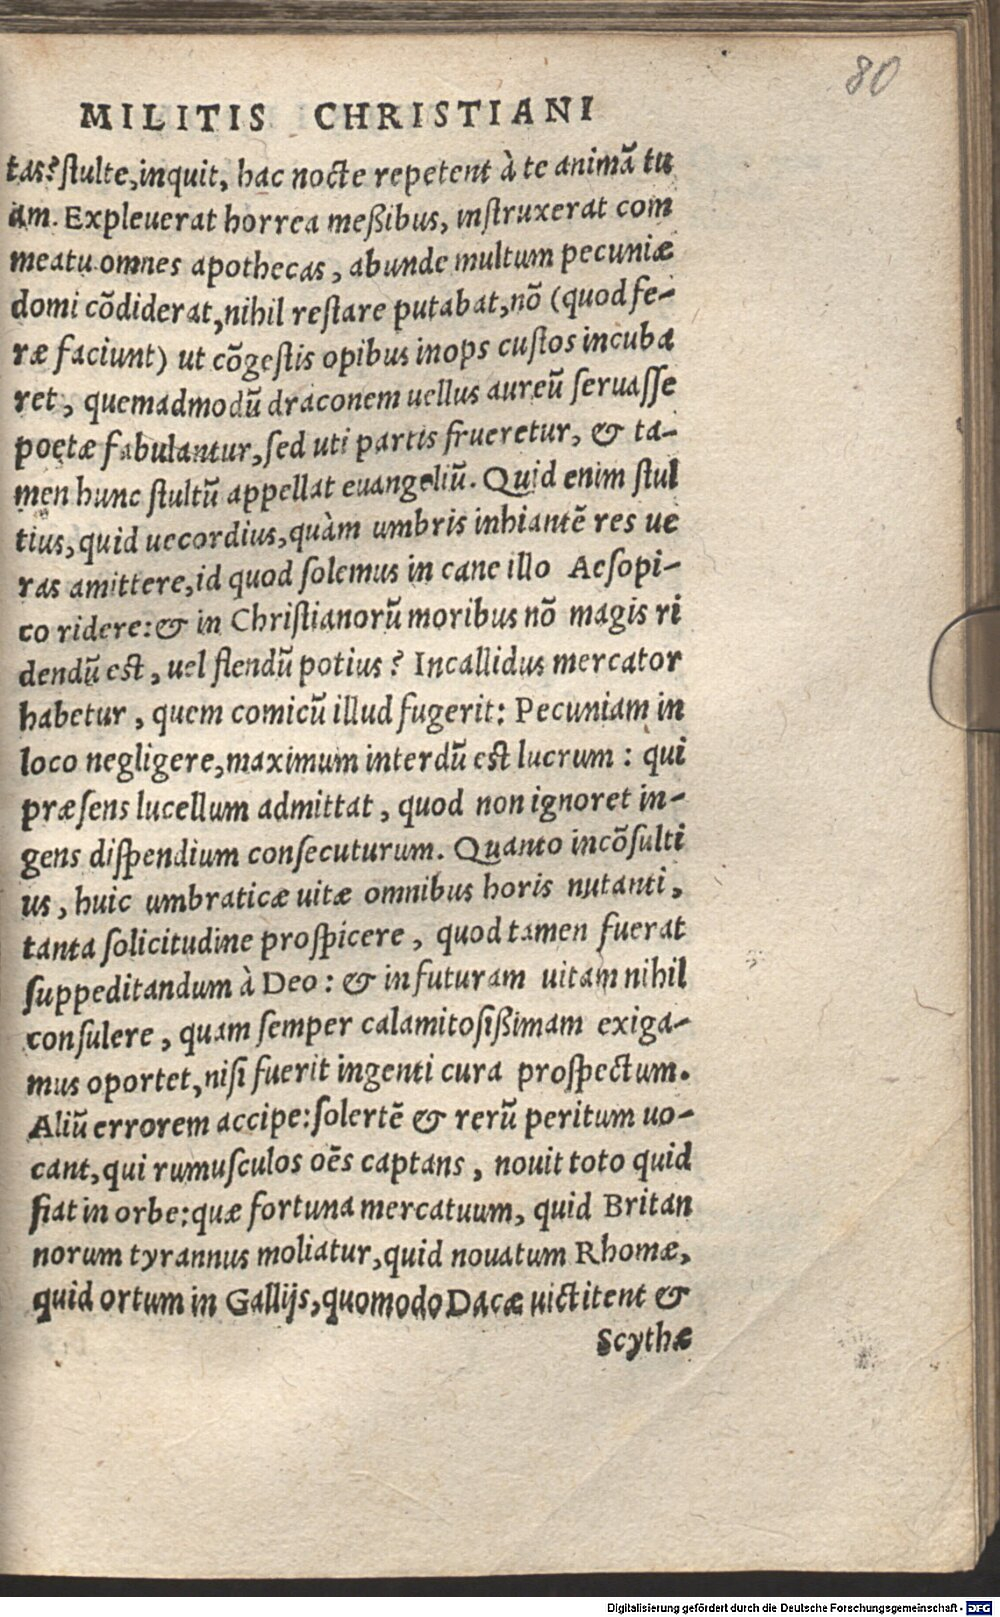 80
MILITIS CHRISTIANI
tas? stulte, inquit, hac nocte repetent à te animã tu
am. Expleuerat horrea meßibus, instruxerat com
meatu omnes apothecas, abunde multum pecuniæ
domi cõdiderat, nihil restare putabat, nõ (quod fe-
ræ faciunt) ut cõgestis opibus inops custos incuba
ret, quemadmodũ draconem uellus aureũ seruasse
poetæ fabulantur, sed uti partis frueretur, & ta-
men hunc stultũ appellat euangeliũ. Quid enim stul
tius, quid uecordius, quàm umbris inhiantẽ res ue
ras amittere, id quod solemus in cane illo Aesopi-
co ridere: & in Christianorũ moribus nõ magis ri
dendũ est, uel flendũ potius? Incallidus mercator
habetur, quem comicũ illud fugerit: Pecuniam in
loco negligere, maximum interdũ est lucrum: qui
præsens lucellum admittat, quod non ignoret in-
gens dispendium consecuturum. Quanto incõsulti
us, huic umbraticæ uitæ omnibus horis nutanti,
tanta solicitudine prospicere, quod tamen fuerat
suppeditandum à Deo: & in futuram uitam nihil
consulere, quam semper calamitosißimam exiga-
mus oportet, nisi fuerit ingenti cura prospectum.
Aliũ errorem accipe: solertẽ & rerũ peritum uo-
cant, qui rumusculos oẽs captans, nouit toto quid
fiat in orbe: quæ fortuna mercatuum, quid Britan
norum tyrannus moliatur, quid nouatum Rhomæ,
quid ortum in Gallijs, quomodo Dacæ uictitent &
Scythæ
Digitalisierung gefördert durch die Deutsche Forschungsgemeinschaft - DFG